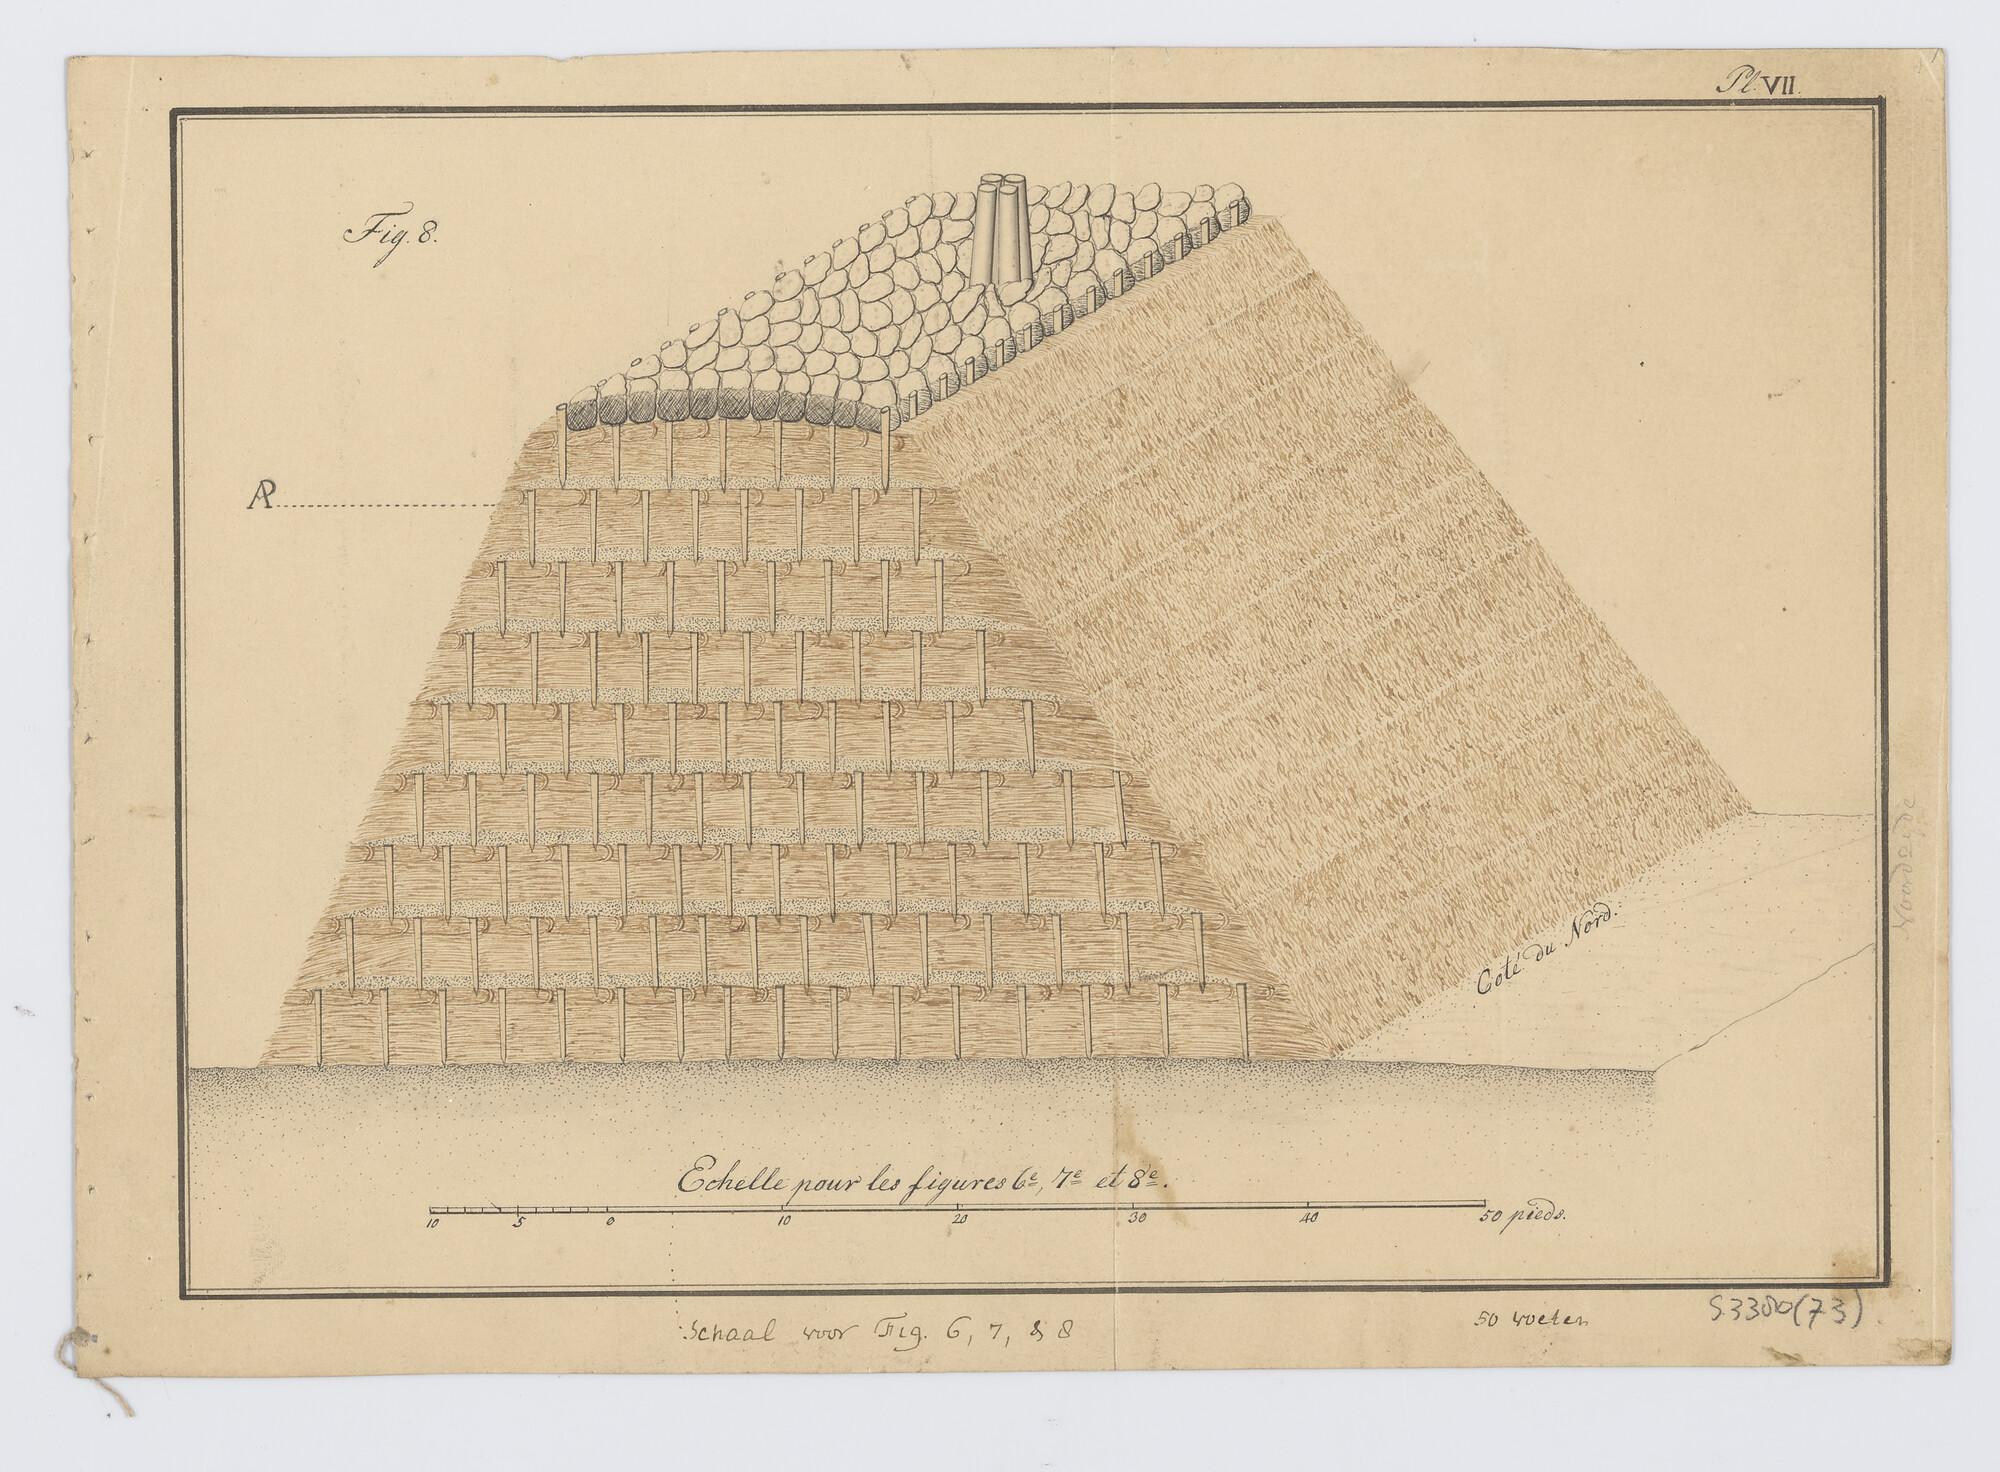 Pl. VII.
Fig. 8.
AP
Coté du Nord.
Noordzijde
Echelle pour les figures 6e, 7e et 8e.
10 5 0 10 20 30 40 50 pieds.
Schaal voor Fig. 6, 7, & 8
50 voeten
S.3380(73)